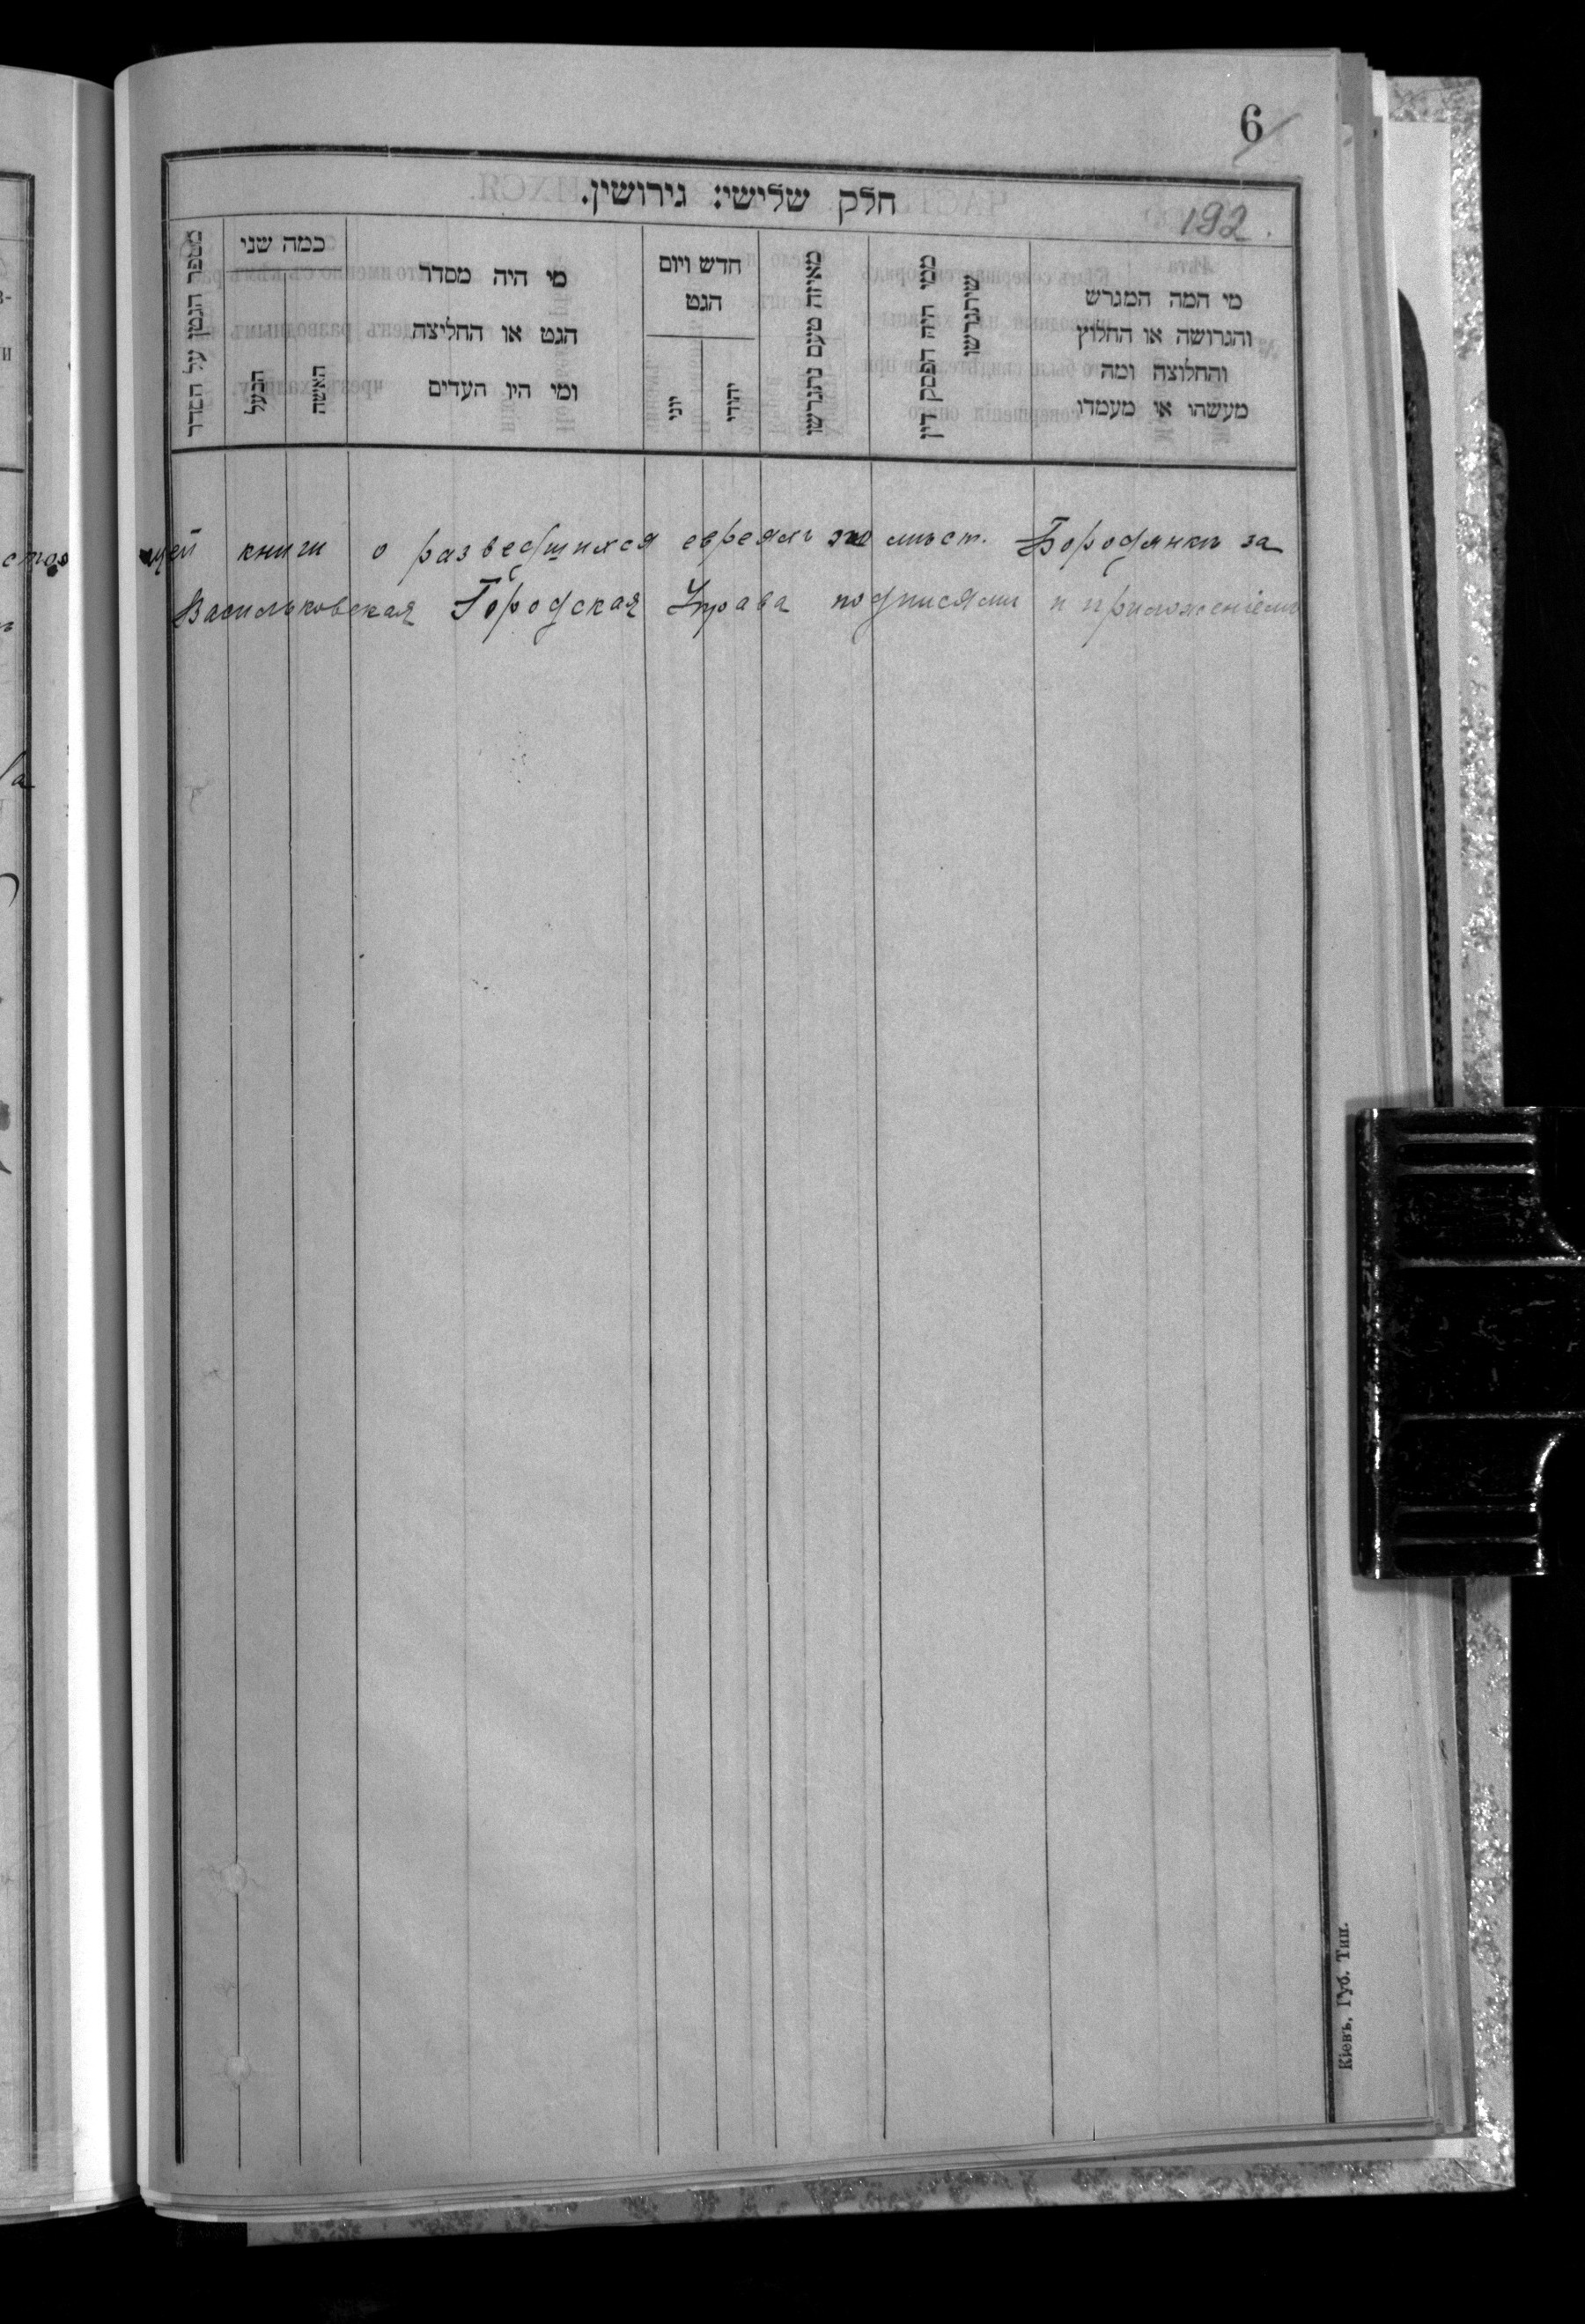 6
חלק שלישי: גירושין.
192.
מספר הגטן על הסדר
כמה שני
הבעל
האשה
מי היה מסדר
הגט או החליצה
ומי היו העדים
חדש ויום
הגט
יוני
יהודי
מאיזה טעם נתגרשו
ממי היה הפסק דין
שיתגרשו
מי המה המגרש
והגרושה או החלוץ
והחלוצה ומה
מעשהו או מעמדו
щей книги о разведшихся евреяхъ мѣст. Бородянкѣ за
Васильковская Городская Управа подписями и приложеніемъ
Кіевъ, Губ. Тип.